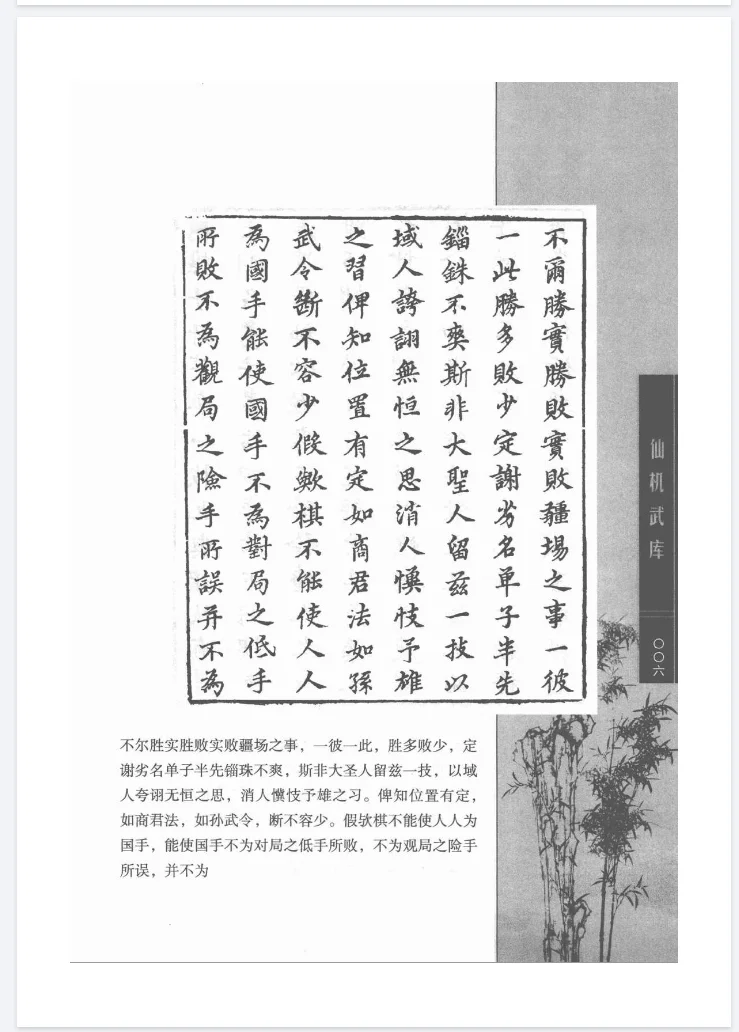 不爾勝實勝敗實敗疆場之事一彼
一此勝多敗少定謝劣名單子半先
錙銖不爽斯非大聖人留茲一技以
域人誇詡無恒之思消人懻忮予雄
之習俾知位置有定如商君法如孫
武令斷不容少假歟棋不能使人人
為國手能使國手不為對局之低手
所敗不為觀局之險手所誤并不為
仙机武库
〇〇六
不尔胜实胜败实败疆场之事，一彼一此，胜多败少，定
谢劣名单子半先锱珠不爽，斯非大圣人留兹一技，以域
人夸诩无恒之思，消人懻忮予雄之习。俾知位置有定，
如商君法，如孙武令，断不容少。假欤棋不能使人人为
国手，能使国手不为对局之低手所败，不为观局之险手
所误，并不为